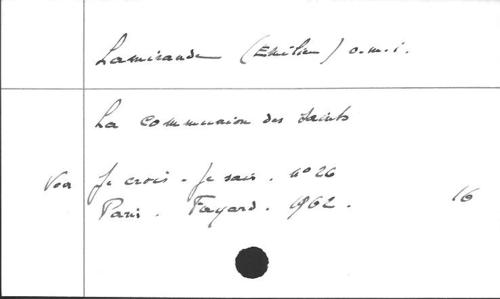 Lamirande (Emilien) o.m.i.
La communion des saints
Voir Je crois - Je sais. n° 26
Paris. Fayard. 1962. 16